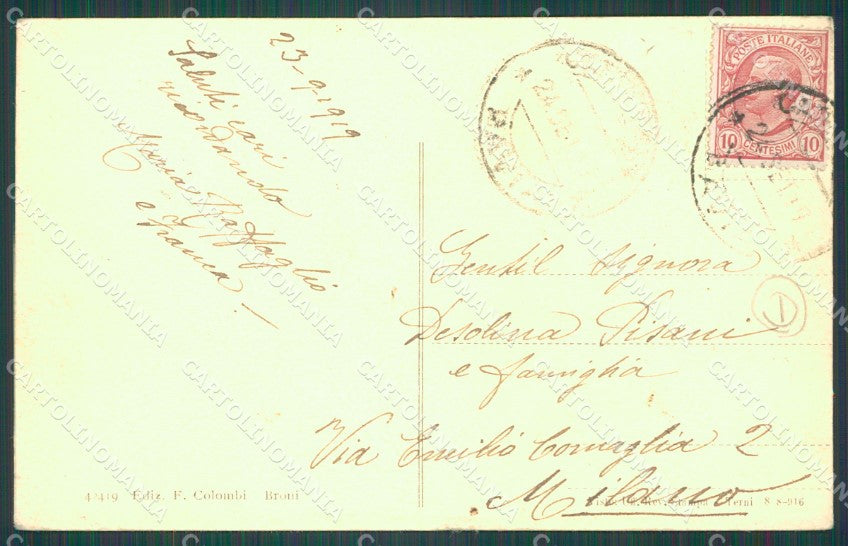 23-9-1919
Saluti cari
ricordando
Maria Battaglio
e Franca.
POSTE ITALIANE
10 CENTESIMI 10
Gentil Signora
Desolina Pisani
e famiglia
Via Emilio Cornaglia 2
Milano
1
42419 Ediz. F. Colombi Broni
Terni 8 8-916
CARTOLINOMANIA